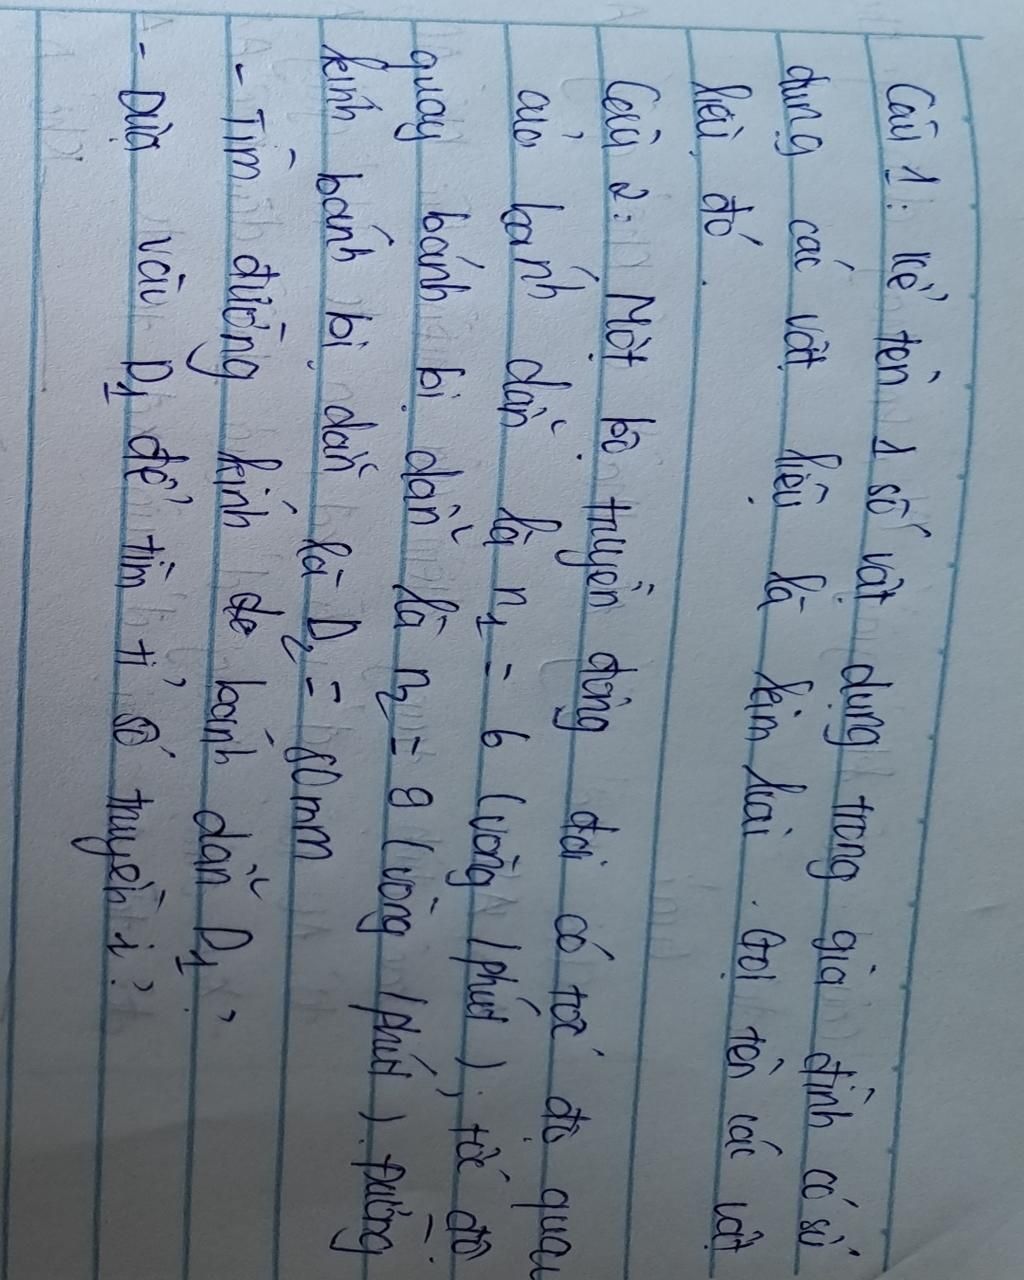 Câu 1: Kể tên 1 số vật dụng trong gia đình có sử
dụng các vật liệu là kim loại. Gọi tên các vật
liệu đó.
Câu 2: Một bộ truyền động đai có tốc độ quay
của bánh dẫn là n1 = 6 (vòng/phút), tốc độ
quay bánh bị dẫn là n2 = 8 (vòng/phút). Đường
kính bánh bị dẫn là D2 = 60mm
- Tìm đường kính bánh dẫn D1?
- Dựa vào D1 để tìm tỉ số truyền i?